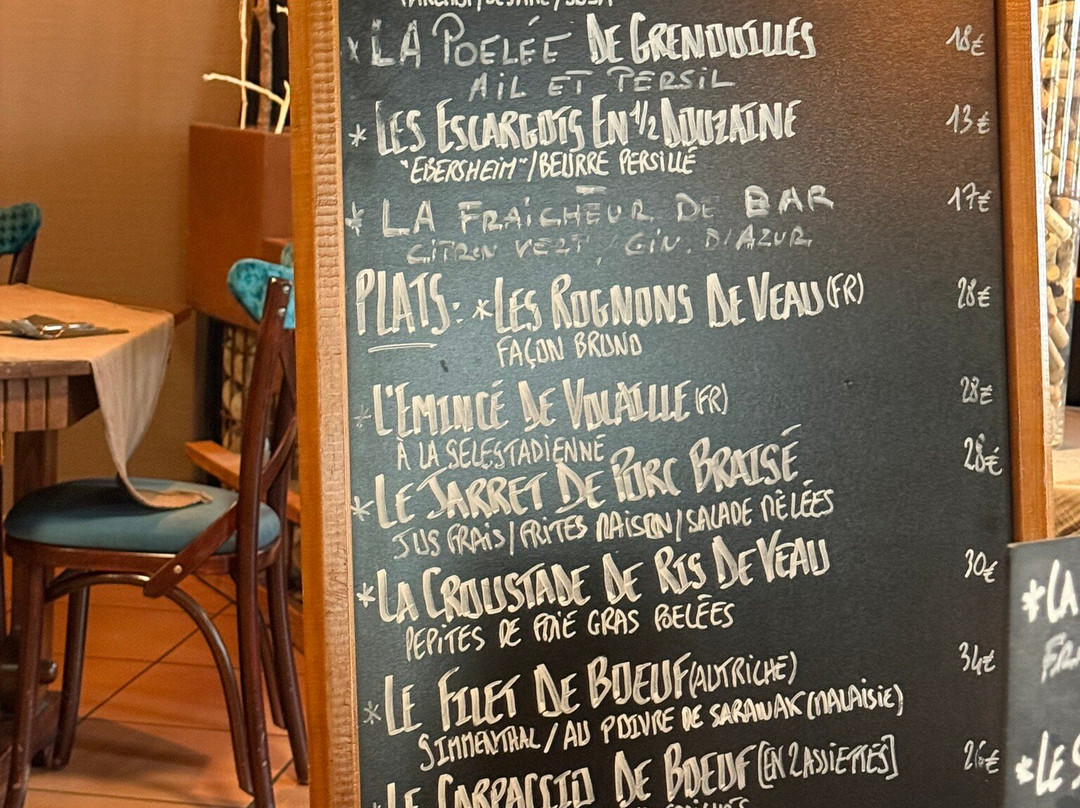 *LA POELÉE DE GRENOUILLES 18€
AIL ET PERSIL
*LES ESCARGOTS EN 1/2 DOUZAINE 13€
"EBERSHEIM"/BEURRE PERSILLÉ
*LA FRAÎCHEUR DE BAR 17€
CITRON VERT/GIN. D'AZUR
PLATS: *LES ROGNONS DE VEAU (FR) 28€
FAÇON BRUNO
*L'EMINCÉ DE VOLAILLE (FR) 28€
À LA SELESTADIENNE
*LE JARRET DE PORC BRAISÉ 28€
JUS FRAIS/FRITES MAISON/SALADE MÊLÉES
*LA CROUSTADE DE RIS DE VEAU 30€
PEPITES DE FOIE GRAS POELÉES
*LE FILET DE BOEUF (AUTRICHE) 34€
SIMMENTHAL/AU POIVRE DE SARAWAK (MALAISIE)
*LE CARPACCIO DE BOEUF [EN 2 ASSIETTES] 26€
*LA
*LE